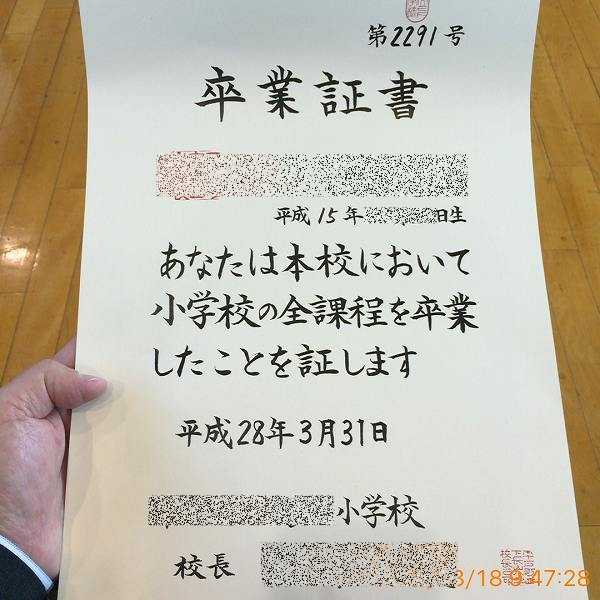 第2291号
卒業証書
平成15年 日生
あなたは本校において
小学校の全課程を卒業
したことを証します
平成28年3月31日
小学校
校長
3/18 9:47:28